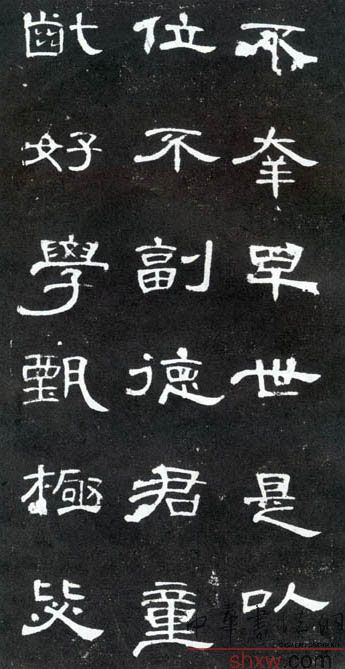 不幸早世是以
位不副德君童
齔好學甄極毖
shxw.com